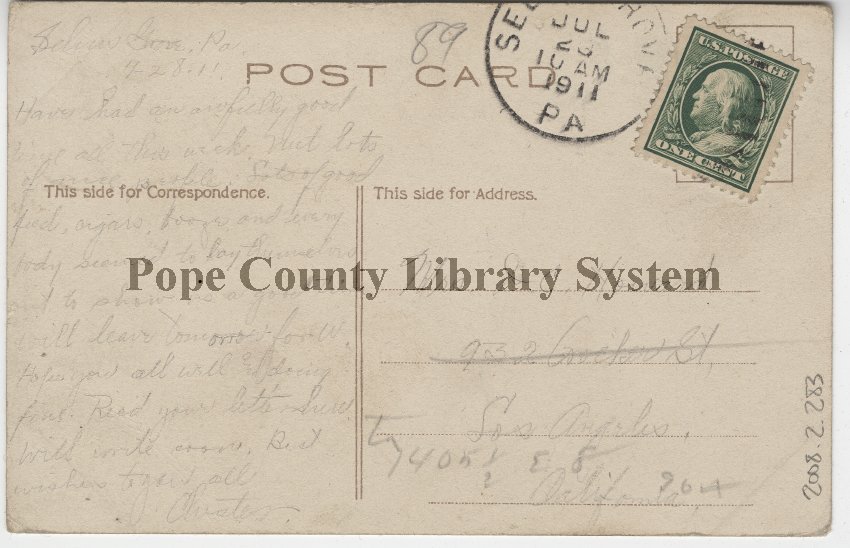 Pa.
7.28.11.
Have had an awfully good
time all this week. Met lots
of nice people. Lots of good
feed, cigars, booze and every
body seemed to lay themselves
out to show us a good
will leave tomorrow for
Hope you all well & doing
fine. Read your letter here
will write soon. Best
wishes to you all
89
POST CARD
JUL
10 AM
1911
PA
U.S. POSTAGE
ONE CENT
This side for Correspondence.
This side for Address.
Pope County Library System
Howard
932 Crocker St,
Los Angeles,
California,
1405 E 8
2008.2.283